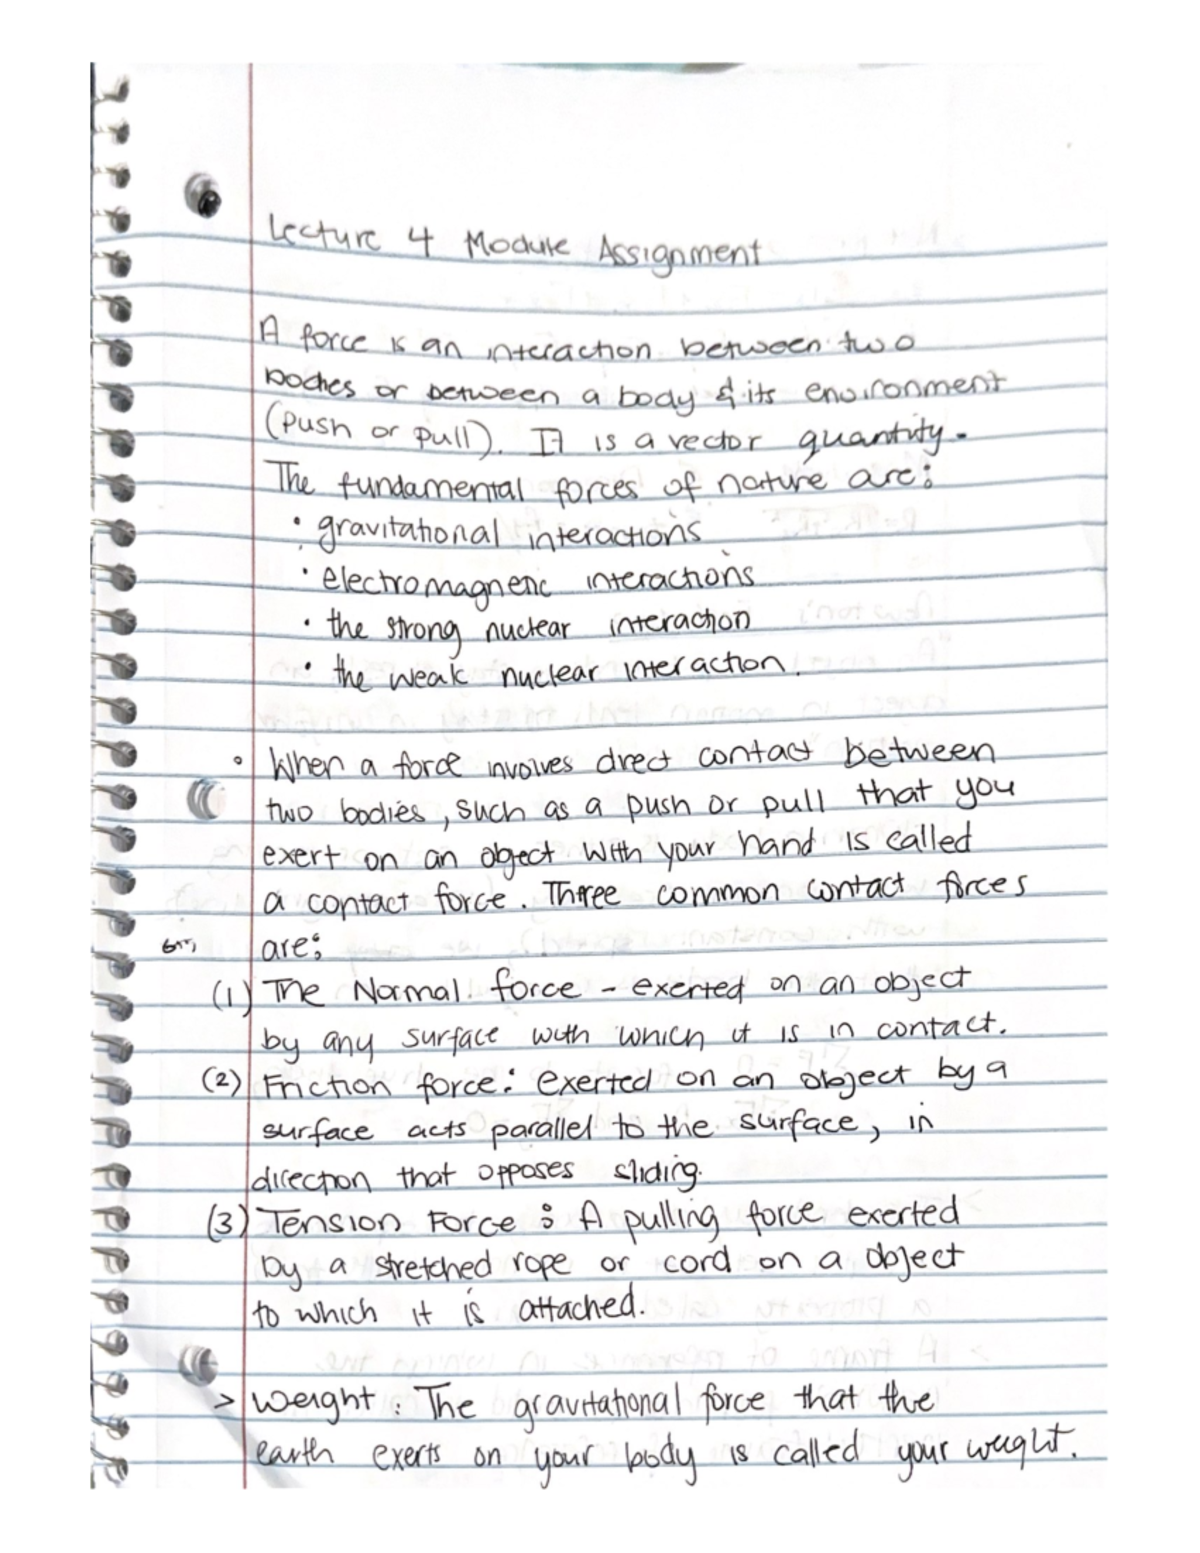 Lecture 4 Module Assignment
A force is an interaction between two
bodies or between a body & its environment
(push or pull). It is a vector quantity.
The fundamental forces of nature are:
• gravitational interactions
• electromagnetic interactions
• the strong nuclear interaction
• the weak nuclear interaction.
• When a force involves direct contact between
two bodies, such as a push or pull that you
exert on an object with your hand is called
a contact force. Three common contact forces
are:
(1) The Normal force - exerted on an object
by any surface with which it is in contact.
(2) Friction force: exerted on an object by a
surface acts parallel to the surface, in
direction that opposes sliding.
(3) Tension Force: A pulling force exerted
by a stretched rope or cord on a object
to which it is attached.
> Weight: The gravitational force that the
earth exerts on your body is called your weight.